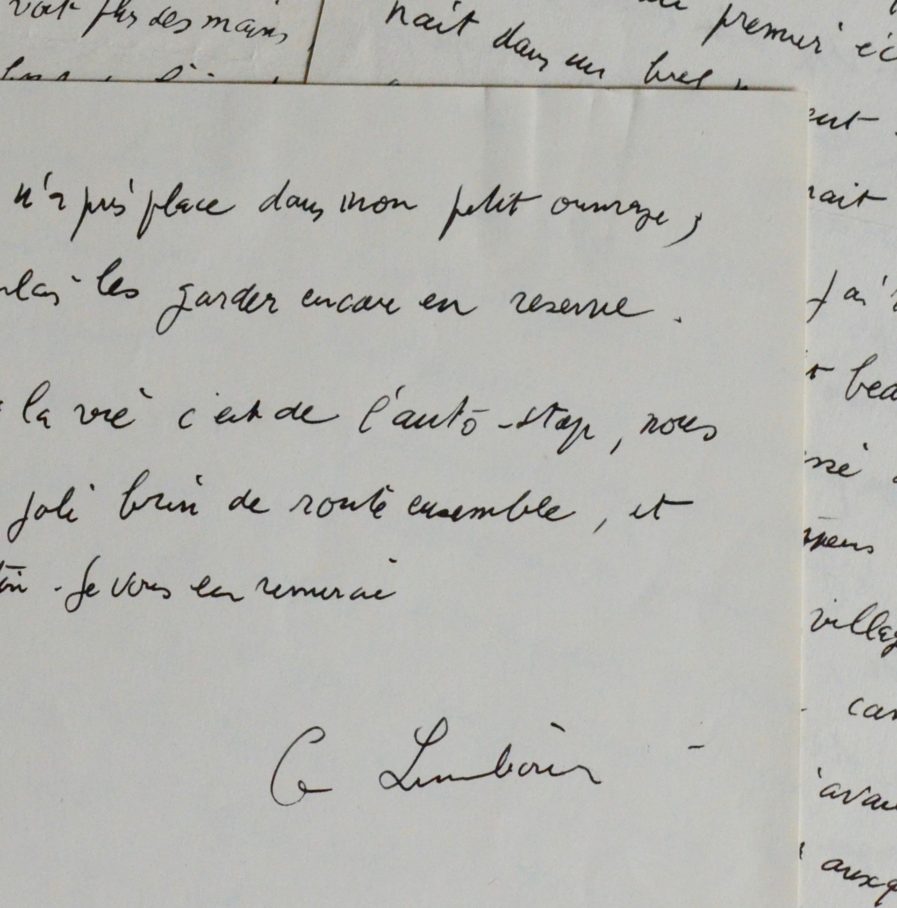 voit plus des mains
nait dans un bref
premier éc
n'a pris place dans mon petit ouvrage,
les garder encore en reserve.
la vie c'est de l'auto-stop, nous
joli brin de route ensemble, et
Je vous en remercie
G Limbour
rait
J'ai
bea
villag
car
avai
auxq